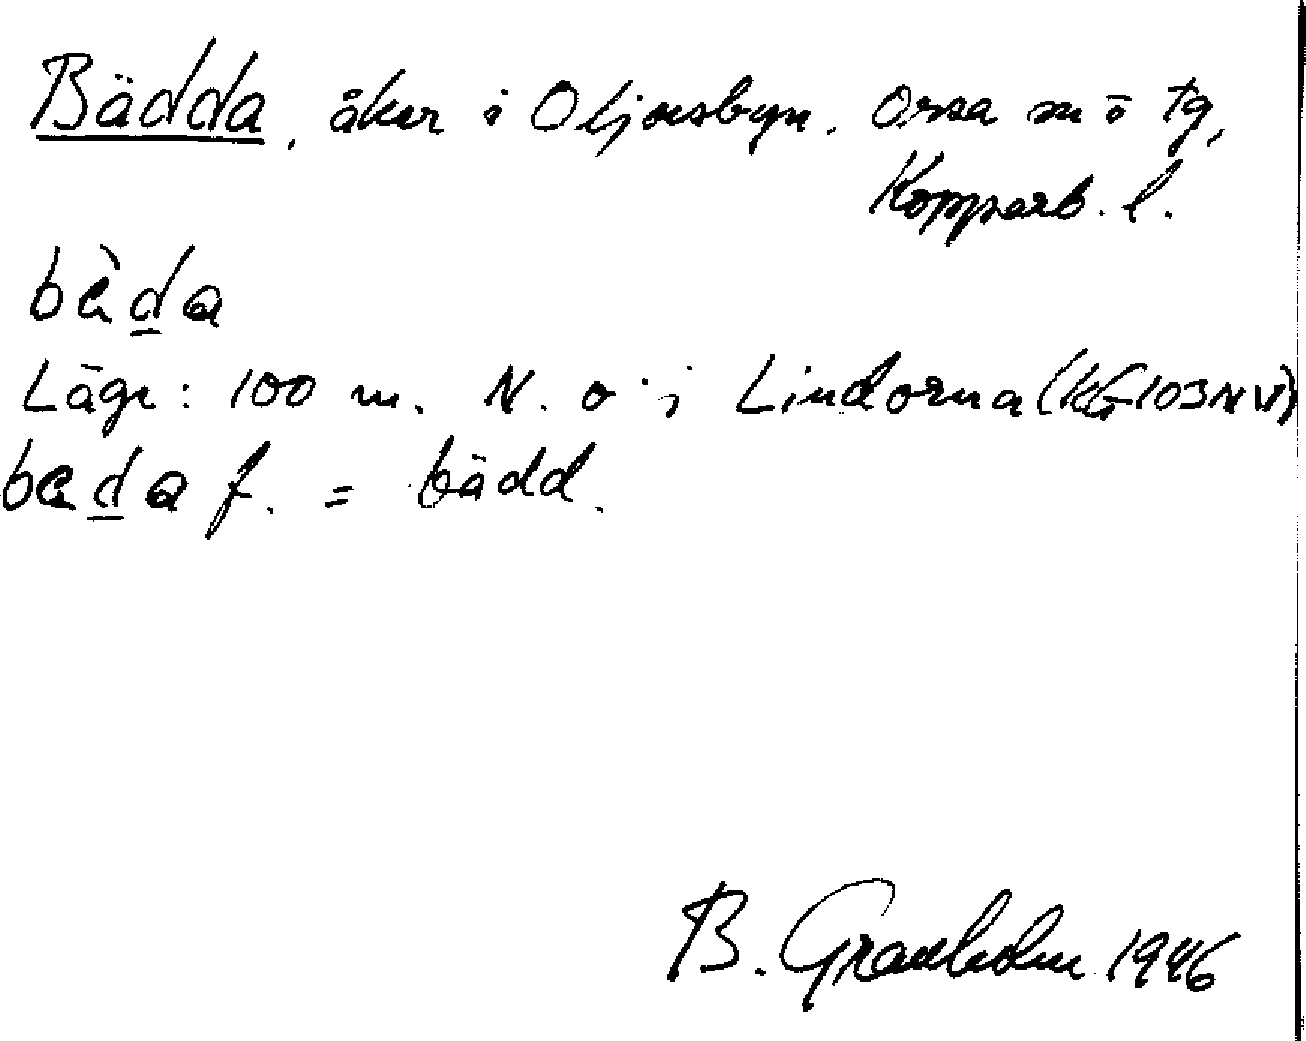 Bädda, åker i Oljonsbyn. Orsa sn o tg,
Kopparb. l.
bèda
Läge: 100 m. N. o. i Lindorna (KG 103 NV)
beda f. = bädd.
B. Granholm 1946